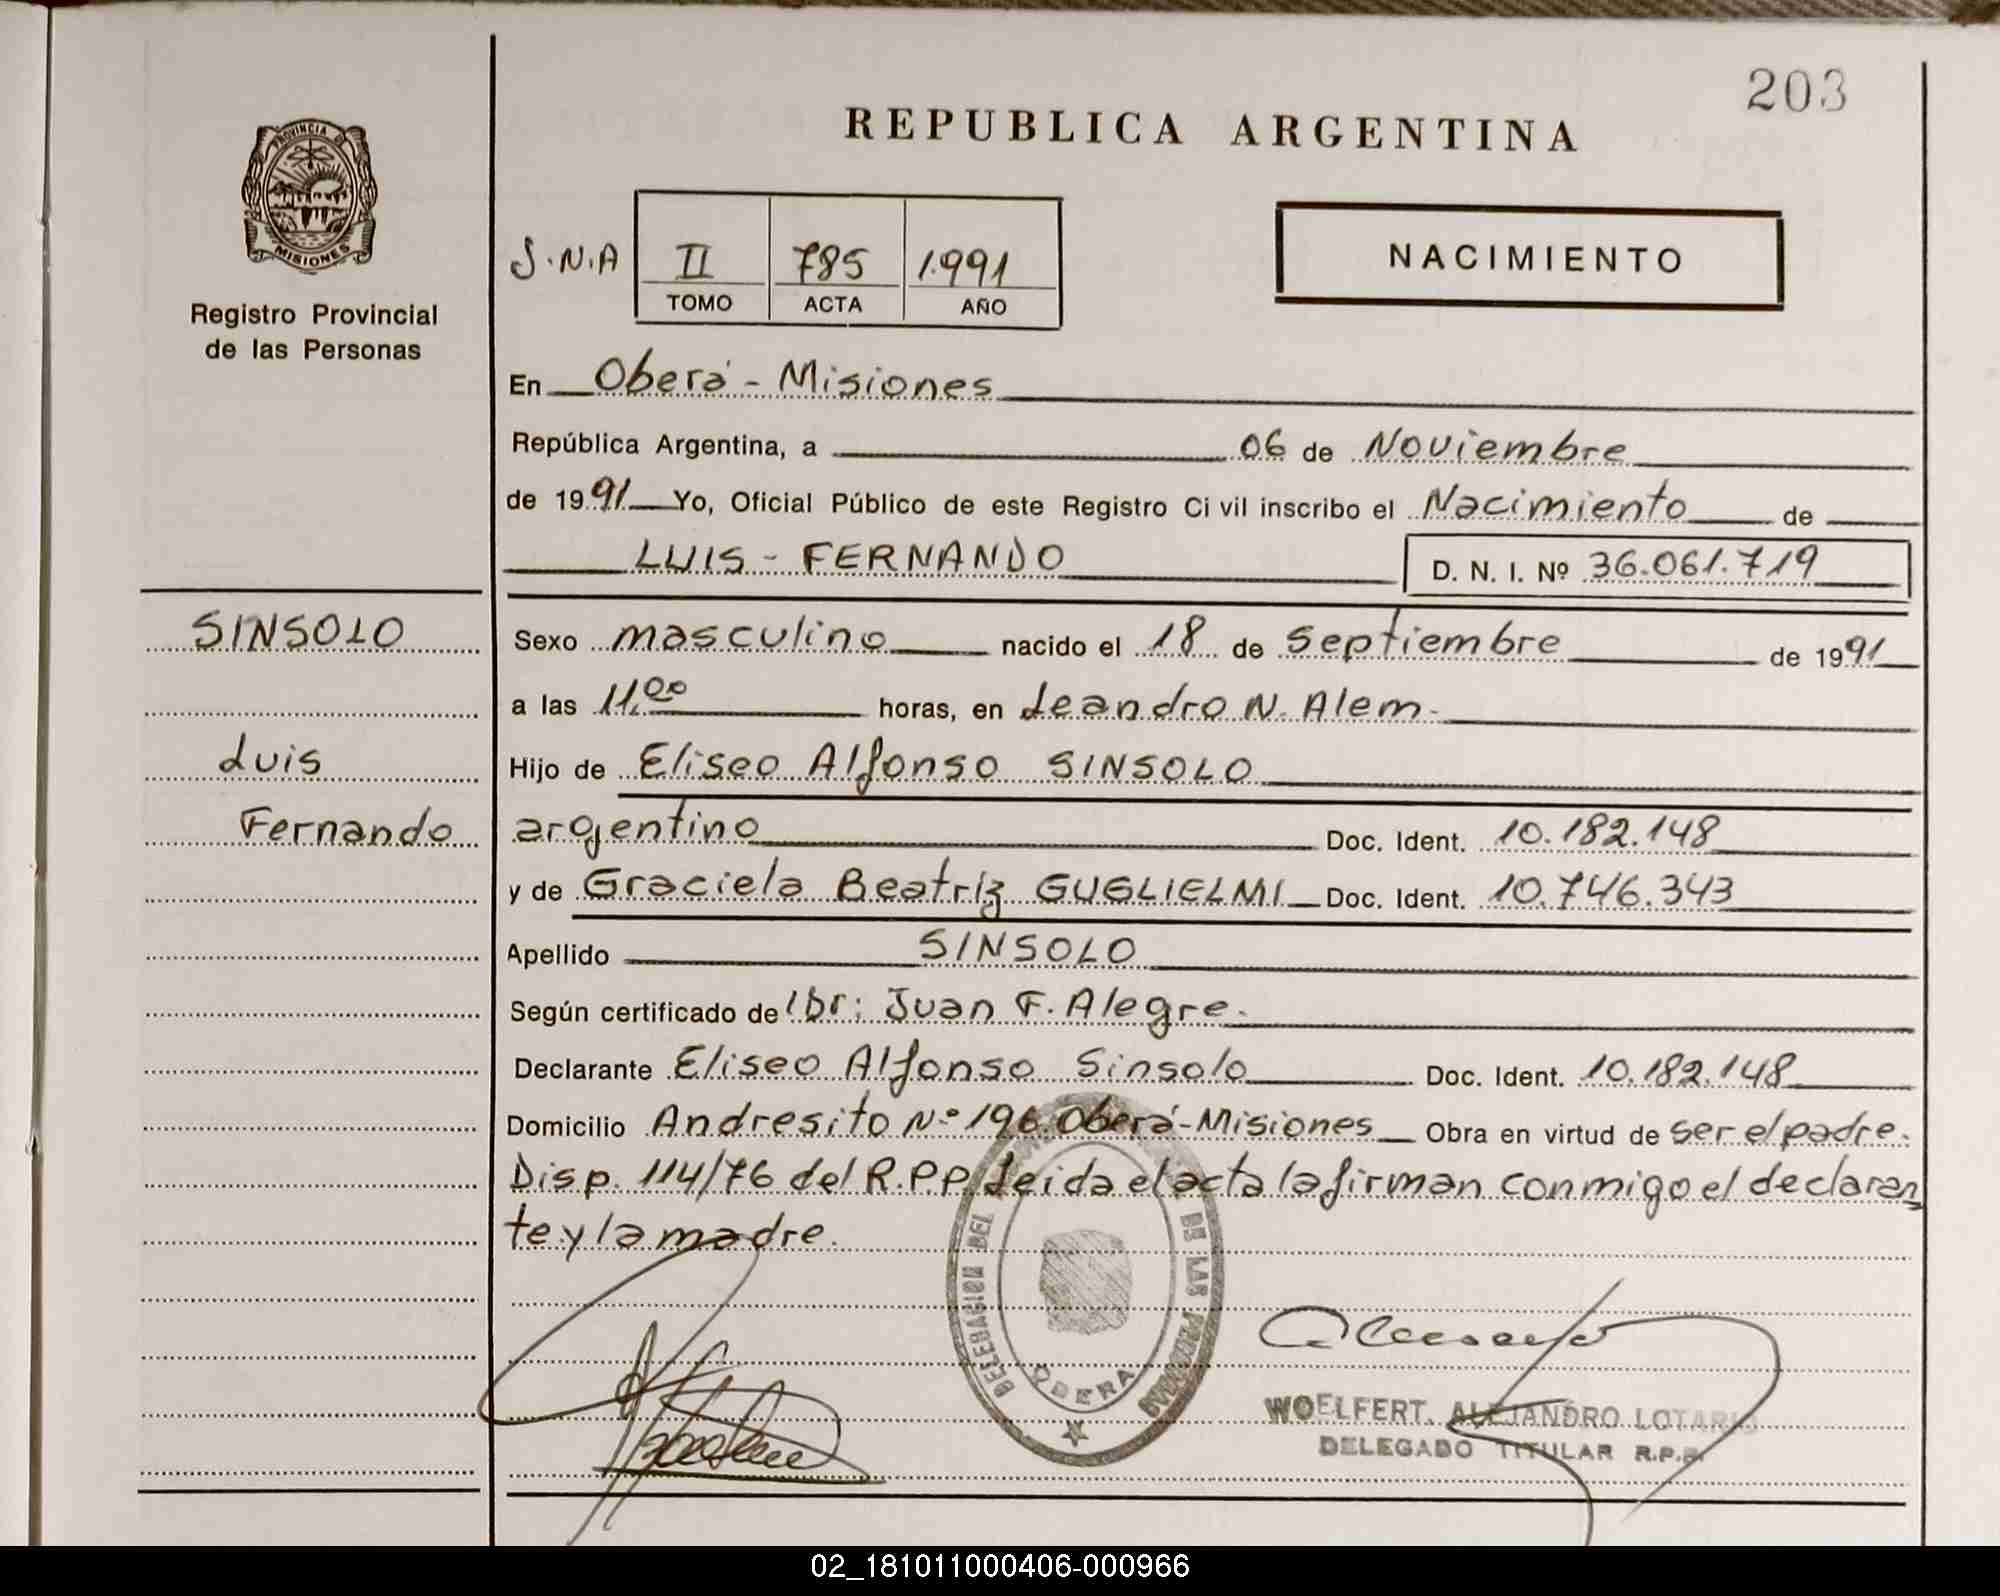 203
REPUBLICA ARGENTINA
PROVINCIA DE
MISIONES
Registro Provincial
de las Personas
S.N.A
II 785 1.991
TOMO ACTA AÑO
NACIMIENTO
En Oberá - Misiones
República Argentina, a 06 de Noviembre
de 1991 Yo, Oficial Público de este Registro Ci vil inscribo el Nacimiento de
LUIS - FERNANDO D. N. I. Nº 36.061.719
SINSOLO
Luis
Fernando
Sexo masculino nacido el 18 de septiembre de 1991
a las 11,00 horas, en Leandro N. Alem.
Hijo de Eliseo Alfonso SINSOLO
argentino Doc. Ident. 10.182.148
y de Graciela Beatriz GUGLIELMI Doc. Ident. 10.746.343
Apellido SINSOLO
Según certificado de Dr: Juan F. Alegre.
Declarante Eliseo Alfonso Sinsolo Doc. Ident. 10.182.148
Domicilio Andresito Nº 196. Oberá-Misiones Obra en virtud de ser el padre.
Disp. 114/76 del R.P.P. Leida el acta la firman conmigo el declaran
te y la madre.
DELEGACION DEL DE LAS PERSONAS
OBERA
WOELFERT, ALEJANDRO LOTARIO
DELEGADO TITULAR R.P.P.
02_181011000406-000966